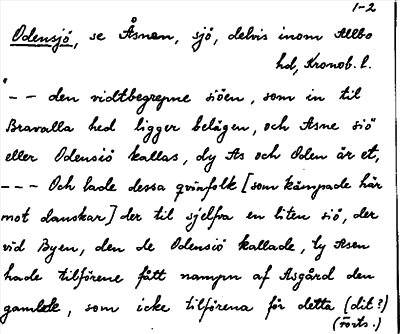 1-2
Odensjö, se Åsnen, sjö, delvis inom Allbo
hd, Kronob. l.
"– – den vidtbegrepne siöen, som in til
Bravalla hed ligger belägen, och Asne siö
eller Odensiö kallas, dy As och Oden är et,
– – – Och lade dessa qvinfolk [som kämpade här
mot danskar] der til sjelfva en liten siö, der
vid Byen, den de Odensiö kallade, ty Asen
hade tilförene fått nampn af Asgård den
gamble, som icke tilförena för detta (dit?)
(Forts.)